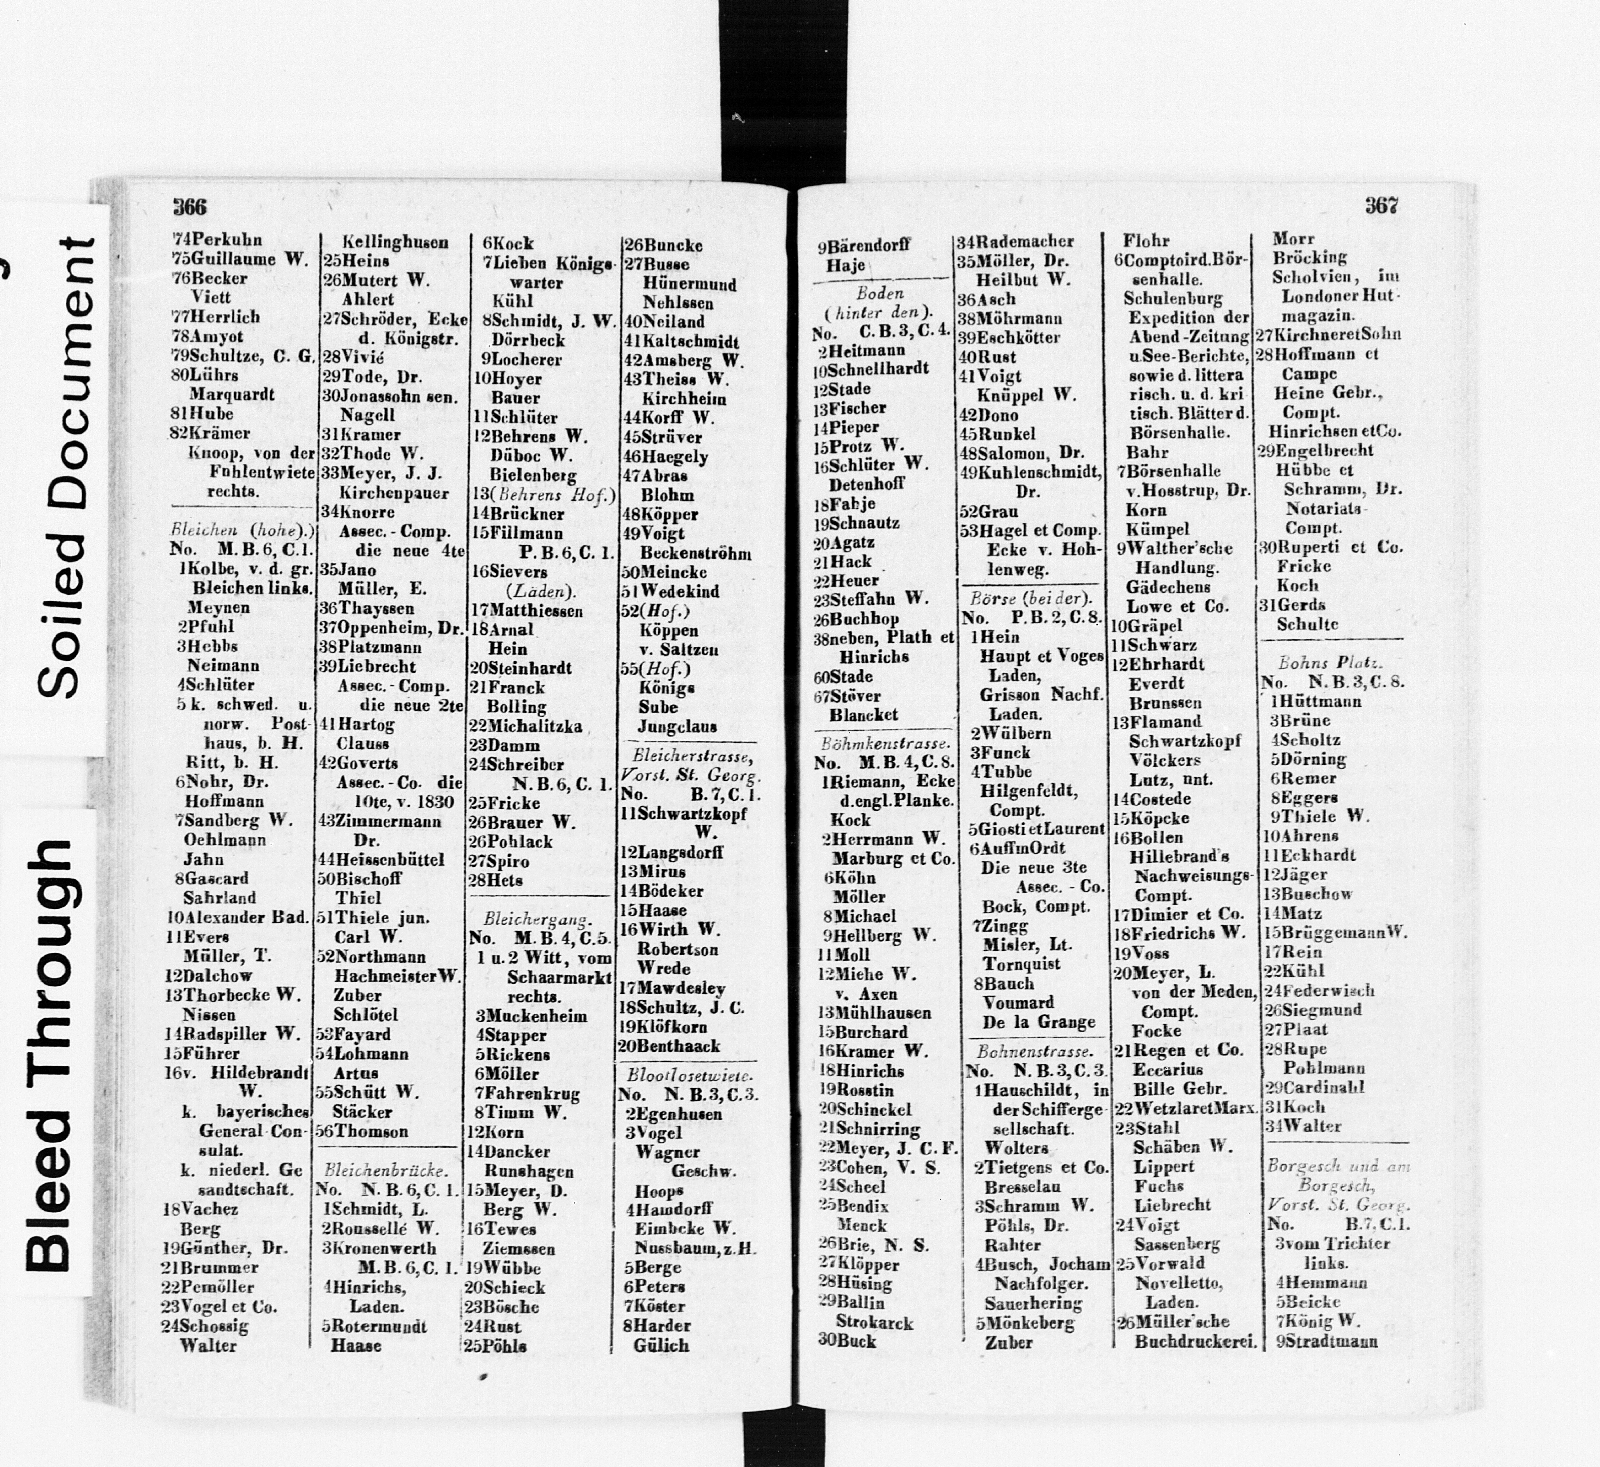 Soiled Document
Bleed Through
366
74Perkuhn
75Guillaume W.
76Becker
Viett
77Herrlich
78Amyot
79Schultze, C. G.
80Lührs
Marquardt
81Hube
82Krämer
Knoop, von der
Fuhlentwiete
rechts.
Bleichen (hohe).)
No. M. B. 6, C. 1.
1Kolbe, v. d. gr.
Bleichen links.
Meynen
2Pfuhl
3Hebbs
Neimann
4Schlüter
5k. schwed. u.
norw. Post-
haus, b. H.
Ritt, b. H.
6Nohr, Dr.
Hoffmann
7Sandberg W.
Oehlmann
Jahn
8Gascard
Sahrland
10Alexander Bad.
11Evers
Müller, T.
12Dalchow
13Thorbecke W.
Nissen
14Radspiller W.
15Führer
16v. Hildebrandt
W.
k. bayerisches
General-Con-
sulat.
k. niederl. Ge
sandtschaft.
18Vachez
Berg
19Günther, Dr.
21Brummer
22Pemöller
23Vogel et Co.
24Schossig
Walter
Kellinghusen
25Heins
26Mutert W.
Ahlert
27Schröder, Ecke
d. Königstr.
28Vivié
29Tode, Dr.
30Jonassohn sen.
Nagell
31Kramer
32Thode W.
33Meyer, J. J.
Kirchenpauer
34Knorre
Assec.-Comp.
die neue 4te
35Jano
Müller, E.
36Thayssen
37Oppenheim, Dr.
38Platzmann
39Liebrecht
Assec.-Comp.
die neue 2te
41Hartog
Clauss
42Goverts
Assec.-Co. die
10te, v. 1830
43Zimmermann
Dr.
44Heissenbüttel
50Bischoff
Thiel
51Thiele jun.
Carl W.
52Northmann
Hachmeister W.
Zuber
Schlötel
53Fayard
54Lohmann
Artus
55Schütt W.
Stäcker
56Thomson
Bleichenbrücke.
No. N. B. 6, C. 1.
1Schmidt, L.
2Rousselle W.
3Kronenwerth
M. B. 6, C. 1.
4Hinrichs,
Laden.
5Rotermundt
Haase
6Kock
7Lieben Königs-
warter
Kühl
8Schmidt, J. W.
Dörrbeck
9Locherer
10Hoyer
Bauer
11Schlüter
12Behrens W.
Düboc W.
Bielenberg
13(Behrens Hof.)
14Brückner
15Fillmann
P. B. 6, C. 1.
16Sievers
(Läden).
17Matthiessen
18Arnal
Hein
20Steinhardt
21Franck
Bolling
22Michalitzka
23Damm
24Schreiber
N. B. 6, C. 1.
25Fricke
26Brauer W.
26Pohlack
27Spiro
28Hets
Bleichergang.
No. M. B. 4, C. 5.
1 u. 2 Witt, vom
Schaarmarkt
rechts.
3Muckenheim
4Stapper
5Rickens
6Möller
7Fahrenkrug
8Timm W.
12Korn
14Dancker
Runshagen
15Meyer, D.
Berg W.
16Tewes
Ziemssen
19Wübbe
20Schieck
23Bösche
24Rust
25Pöhls
26Buncke
27Busse
Hünermund
Nehlssen
40Neiland
41Kaltschmidt
42Amsberg W.
43Theiss W.
Kirchheim
44Korff W.
45Strüver
46Haegely
47Abras
Blohm
48Köpper
49Voigt
Beckenströhm
50Meincke
51Wedekind
52(Hof.)
Köppen
v. Saltzen
55(Hof.)
Königs
Sube
Jungclaus
Bleicherstrasse,
Vorst. St. Georg.
No. B. 7, C. 1.
11Schwartzkopf
W.
12Langsdorff
13Mirus
14Bödeker
15Haase
16Wirth W.
Robertson
Wrede
17Mawdesley
18Schultz, J. C.
19Klöfkorn
20Benthaack
Blootlosetwiete.
No. N. B. 3, C. 3.
2Egenhusen
3Vogel
Wagner
Geschw.
Hoops
4Hamdorff
Eimbcke W.
Nussbaum, z. H.
5Berge
6Peters
7Köster
8Harder
Gülich
367
9Bärendorff
Haje
Boden
(hinter den).
No. C. B. 3, C. 4.
2Heitmann
10Schnellhardt
12Stade
13Fischer
14Pieper
15Protz W.
16Schlüter W.
Detenhoff
18Fahje
19Schnautz
20Agatz
21Hack
22Heuer
23Steffahn W.
26Buchhop
38neben, Plath et
Hinrichs
60Stade
67Stöver
Blancket
Böhmkenstrasse.
No. M. B. 4, C. 8.
1Riemann, Ecke
d. engl. Planke.
Kock
2Herrmann W.
Marburg et Co.
6Köhn
Möller
8Michael
9Hellberg W.
11Moll
12Miehe W.
v. Axen
13Mühlhausen
15Burchard
16Kramer W.
18Hinrichs
19Rosstin
20Schinckel
21Schnirring
22Meyer, J. C. F.
23Cohen, V. S.
24Scheel
25Bendix
Menck
26Brie, N. S.
27Klöpper
28Hüsing
29Ballin
Strokarck
30Buck
34Rademacher
35Möller, Dr.
Heilbut W.
36Asch
38Möhrmann
39Eschkötter
40Rust
41Voigt
Knüppel W.
42Dono
45Runkel
48Salomon, Dr.
49Kuhlenschmidt,
Dr.
52Grau
53Hagel et Comp.
Ecke v. Hoh-
lenweg.
Börse (bei der).
No. P. B. 2, C. 8.
1Hein
Haupt et Voges
Laden,
Grisson Nachf.
Laden.
2Wülbern
3Funck
4Tubbe
Hilgenfeldt,
Compt.
5Giosti et Laurent
6AuffmOrdt
Die neue 3te
Assec.-Co.
Bock, Compt.
7Zingg
Misler, Lt.
Tornquist
8Bauch
Voumard
De la Grange
Bohnenstrasse.
No. N. B. 3, C. 3.
1Hauschildt, in
der Schifferge-
sellschaft.
Wolters
2Tietgens et Co.
Bresselau
3Schramm W.
Pöhls, Dr.
Rahter
4Busch, Jocham
Nachfolger.
Sauerhering
5Mönkeberg
Zuber
Flohr
6Comptoird. Bör-
senhalle.
Schulenburg
Expedition der
Abend-Zeitung
u. See-Berichte,
sowie d. littera
risch. u. d. kri
tisch. Blätter d.
Börsenhalle.
Bahr
7Börsenhalle
v. Hosstrup, Dr.
Korn
Kümpel
9Walther'sche
Handlung.
Gädechens
Lowe et Co.
10Gräpel
11Schwarz
12Ehrhardt
Everdt
Brunssen
13Flamand
Schwartzkopf
Völckers
Lutz, unt.
14Costede
15Köpcke
16Bollen
Hillebrand's
Nachweisungs-
Compt.
17Dimier et Co.
18Friedrichs W.
19Voss
20Meyer, L.
von der Meden,
Compt.
Focke
21Regen et Co.
Eccarius
Bille Gebr.
22Wetzlar et Marx.
23Stahl
Schäben W.
Lippert
Fuchs
Liebrecht
24Voigt
Sassenberg
25Vorwald
Novelletto,
Laden.
26Müller'sche
Buchdruckerei.
Morr
Bröcking
Scholvien, im
Londoner Hut-
magazin.
27Kirchner et Sohn
28Hoffmann et
Campe
Heine Gebr.,
Compt.
Hinrichsen et Co.
29Engelbrecht
Hübbe et
Schramm, Dr.
Notariats-
Compt.
30Ruperti et Co.
Fricke
Koch
31Gerds
Schulte
Bohns Platz.
No. N. B. 3, C. 8.
1Hüttmann
3Brüne
4Scholtz
5Dörning
6Remer
8Eggers
9Thiele W.
10Ahrens
11Eckhardt
12Jäger
13Buschow
14Matz
15Brüggemann W.
17Rein
22Kühl
24Federwisch
26Siegmund
27Plaat
28Rupe
Pohlmann
29Cardinahl
31Koch
34Walter
Borgesch und am
Borgesch,
Vorst. St. Georg.
No. B. 7, C. 1.
3vom Trichter
links.
4Hemmann
5Beicke
7König W.
9Stradtmann